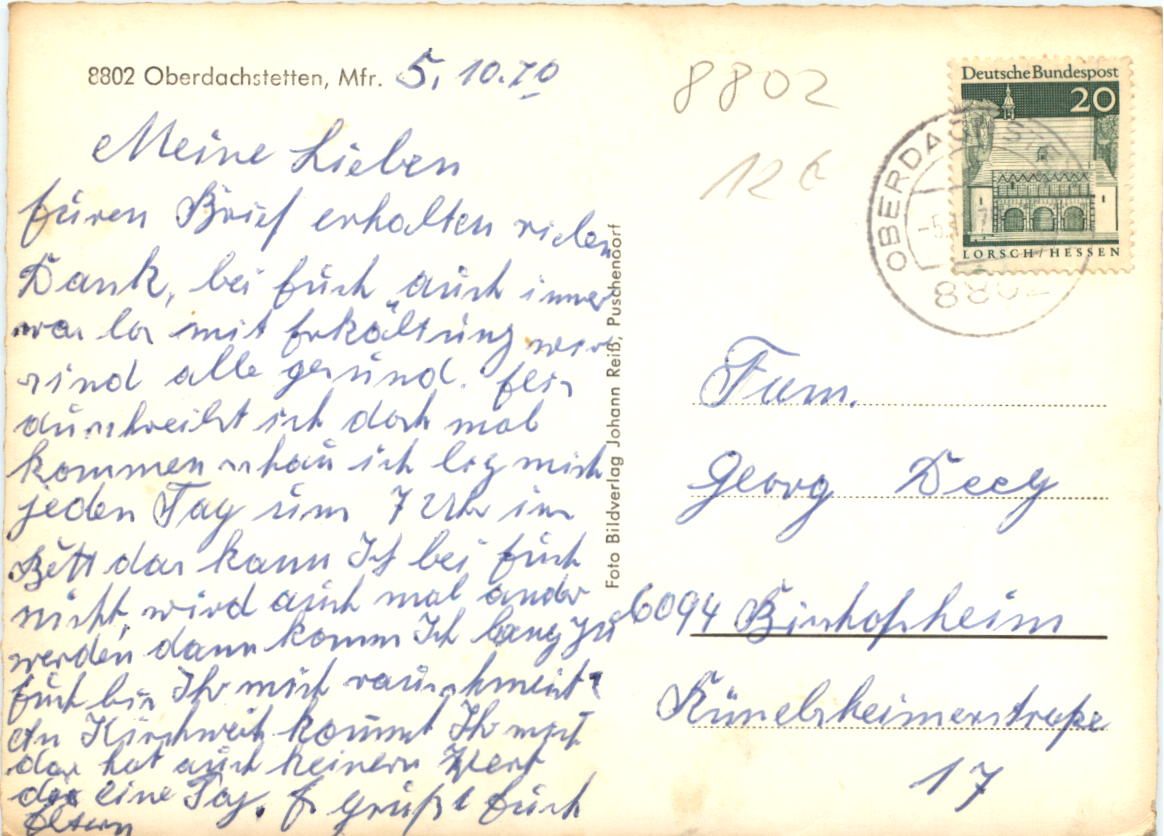 8802 Oberdachstetten, Mfr. 5.10.70
Meine Lieben
Euren Brief erhalten vielen
Dank, bei Euch auch immer
was los mit Erkältung wir
sind alle gesund.
du schreibst ich doch mal
kommen schau ich leg mich
jeden Tag um 7 Uhr ins
Bett das kann Ich bei Euch
nicht, wird auch mal anders
werden dann komm Ich lang zu
Euch bis Ihr mich
An Kirchweih kommt Ihr nicht
das hat auch keinen Wert
die eine Tag. Es grüßt Euch
Eltern
Foto Bildverlag Johann Reiß, Puschendorf
8802
12 €
Deutsche Bundespost
20
LORSCH/HESSEN
OBERDACHSTE
-5.
8802
Fam.
Georg Deeg
6094 Bischofsheim
Rünelsheimerstraße
17